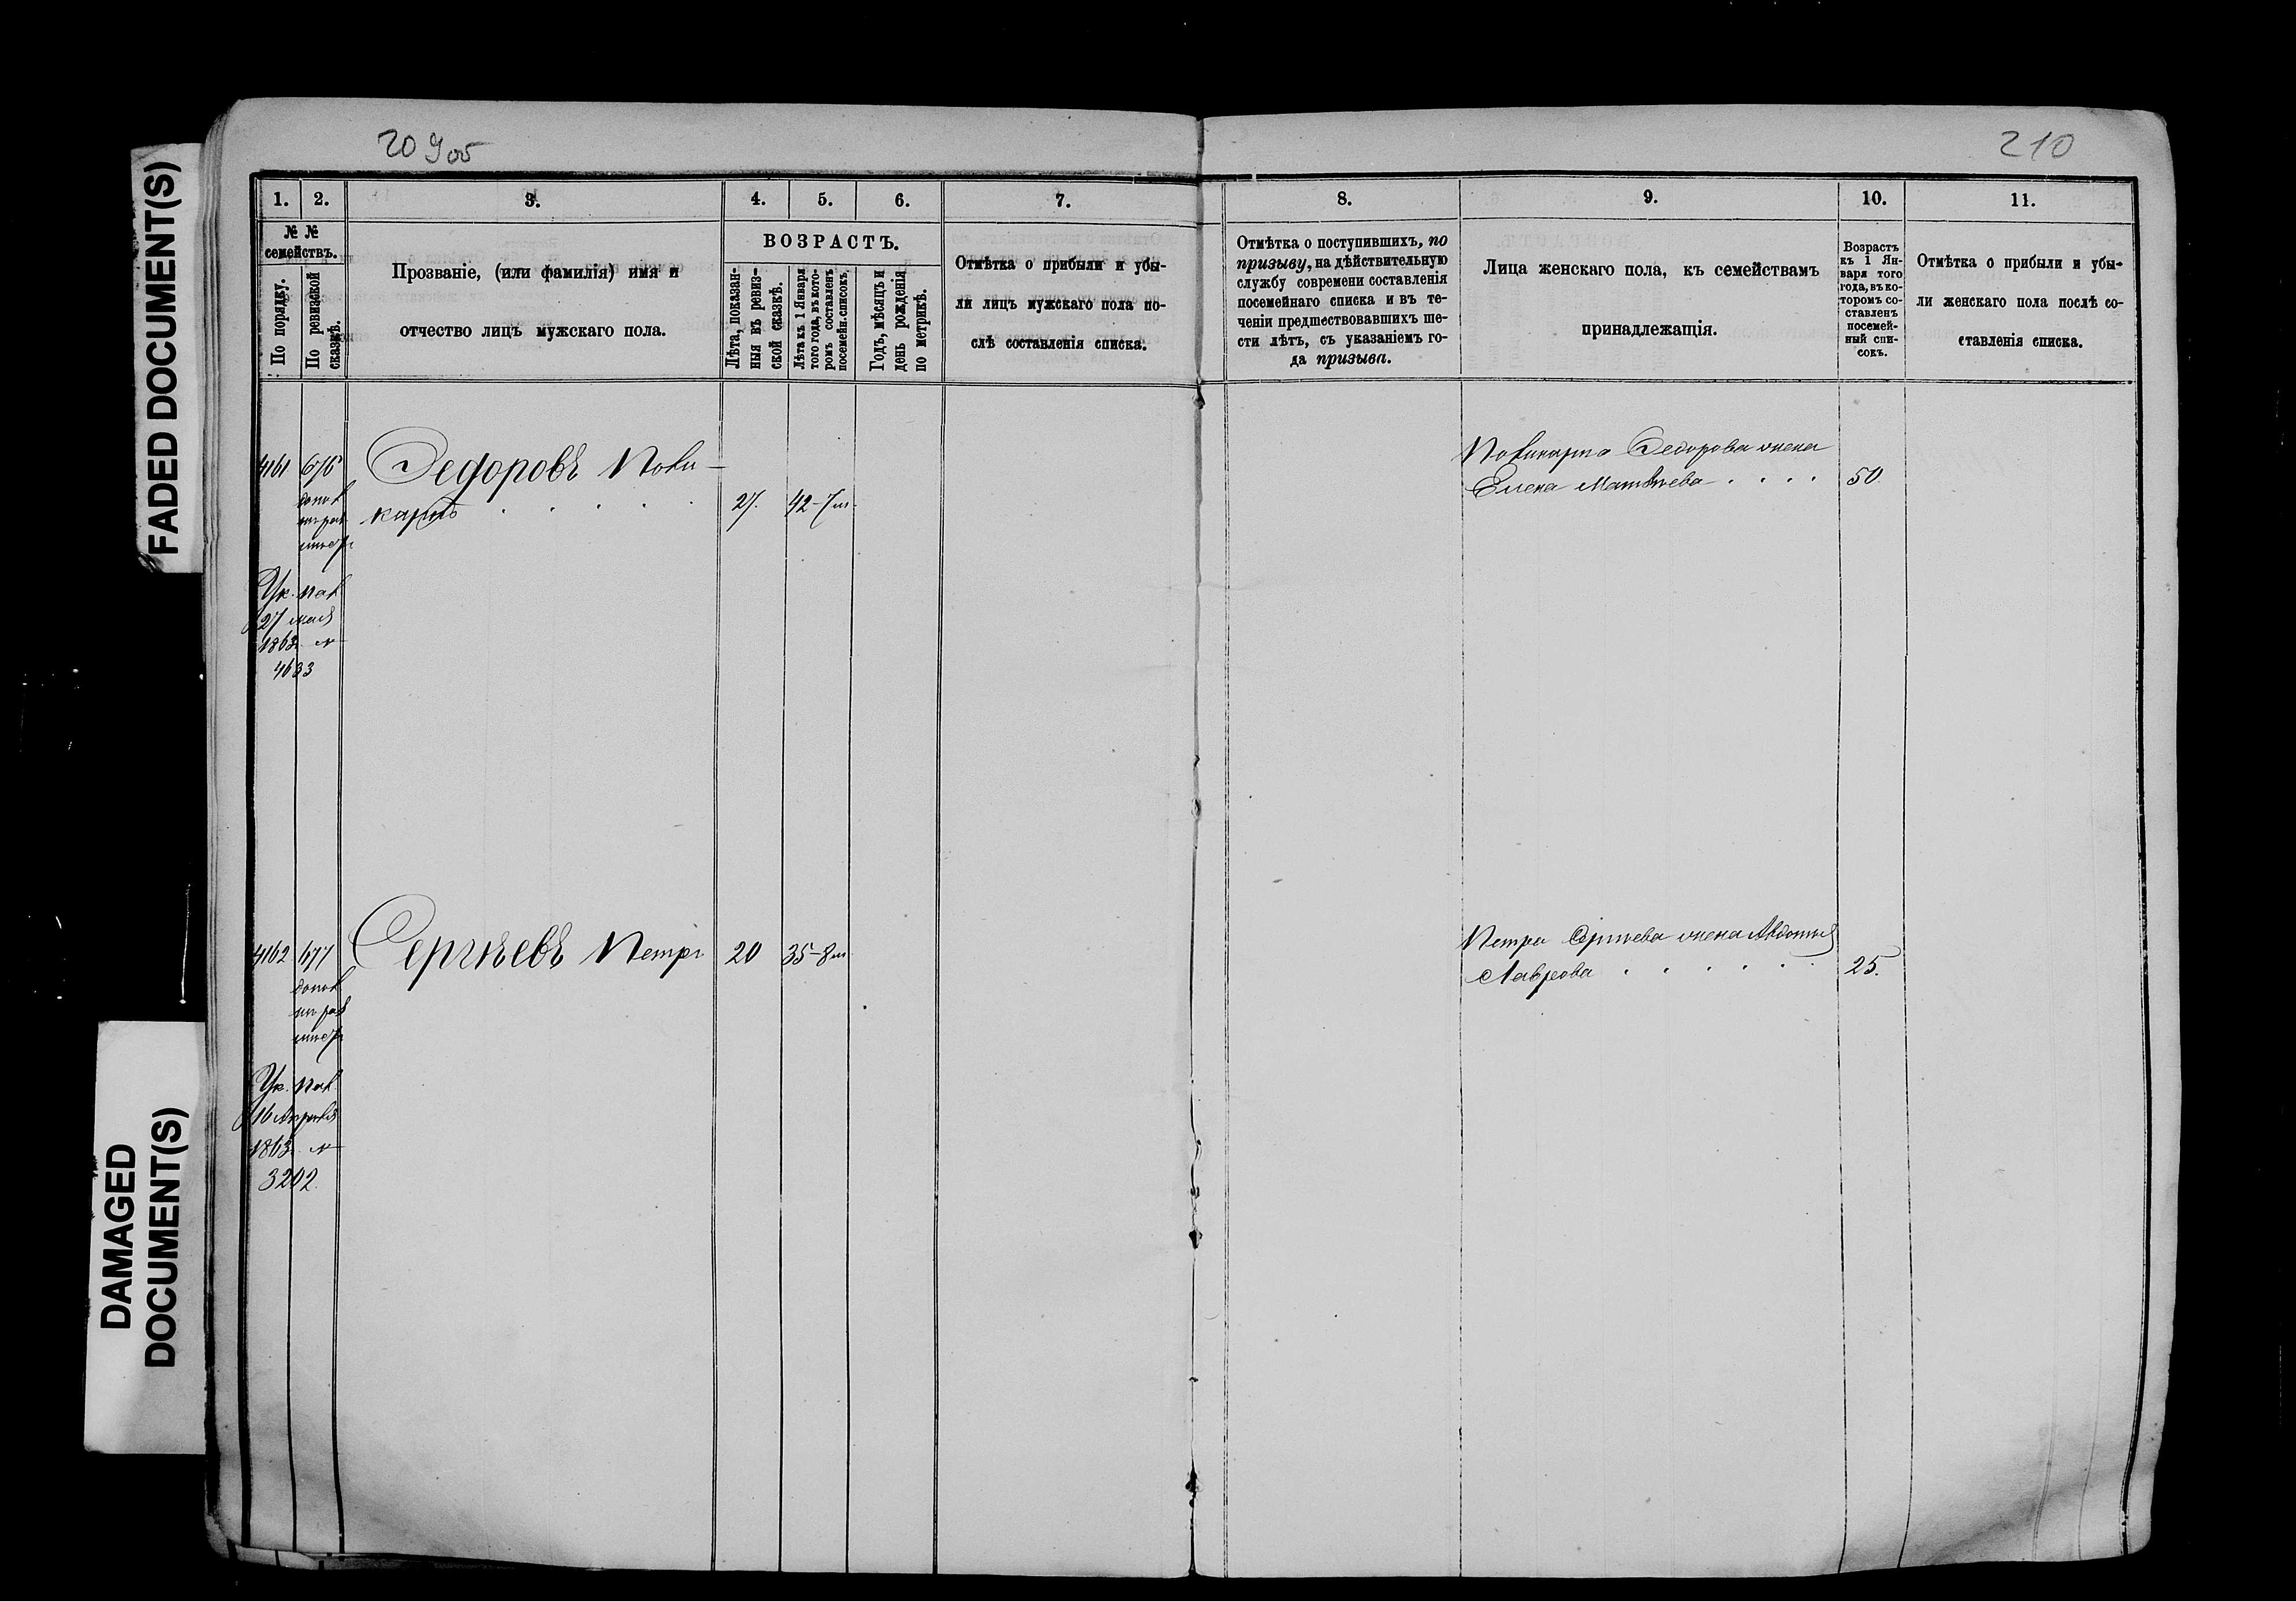 FADED DOCUMENT(S)
DAMAGED
DOCUMENT(S)
209об
210
1.
2.
3.
4.
5.
6.
7.
8.
9.
10.
11.
№ №
семействъ.
По порядку.
По ревизской
сказкѣ.
Прозваніе, (или фамилія) имя и
отчество лицъ мужскаго пола.
ВОЗРАСТЪ.
Лѣта, показан-
ныя въ ревиз-
ской сказкѣ.
Лѣта къ 1 Января
того года, въ кото-
ромъ составленъ
посемейн. списокъ.
Годъ, мѣсяцъ и
день рожденія
по метрикѣ.
Отмѣтка о прибыли и убы-
ли лицъ мужскаго пола по-
слѣ составленія списка.
Отмѣтка о поступившихъ, по
призыву, на дѣйствительную
службу современи составленія
посемейнаго списка и въ те-
ченіи предшествовавшихъ ше-
сти лѣтъ, съ указаніемъ го-
да призыва.
Лица женскаго пола, къ семействамъ
принадлежащія.
Возрастъ
къ 1 Ян-
варя того
года, въ ко-
торомъ со-
ставленъ
посемей-
ный спи-
сокъ.
Отмѣтка о прибыли и убы-
ли женскаго пола послѣ со-
ставленія списка.
4161 676 Федоровъ Поли-
карпъ 27. 42-7м.
допол
Ук. Пал
27 мая
1863 №
4633
Поликарпа Федорова жена
Елена Матвѣева 50
4162 677 Сергѣевъ Петръ 20 35-8м.
допол
Ук. Пал
16 Апрѣля
1863 №
3202.
Петра Сергѣева жена Авдотья
Лаврова 25.